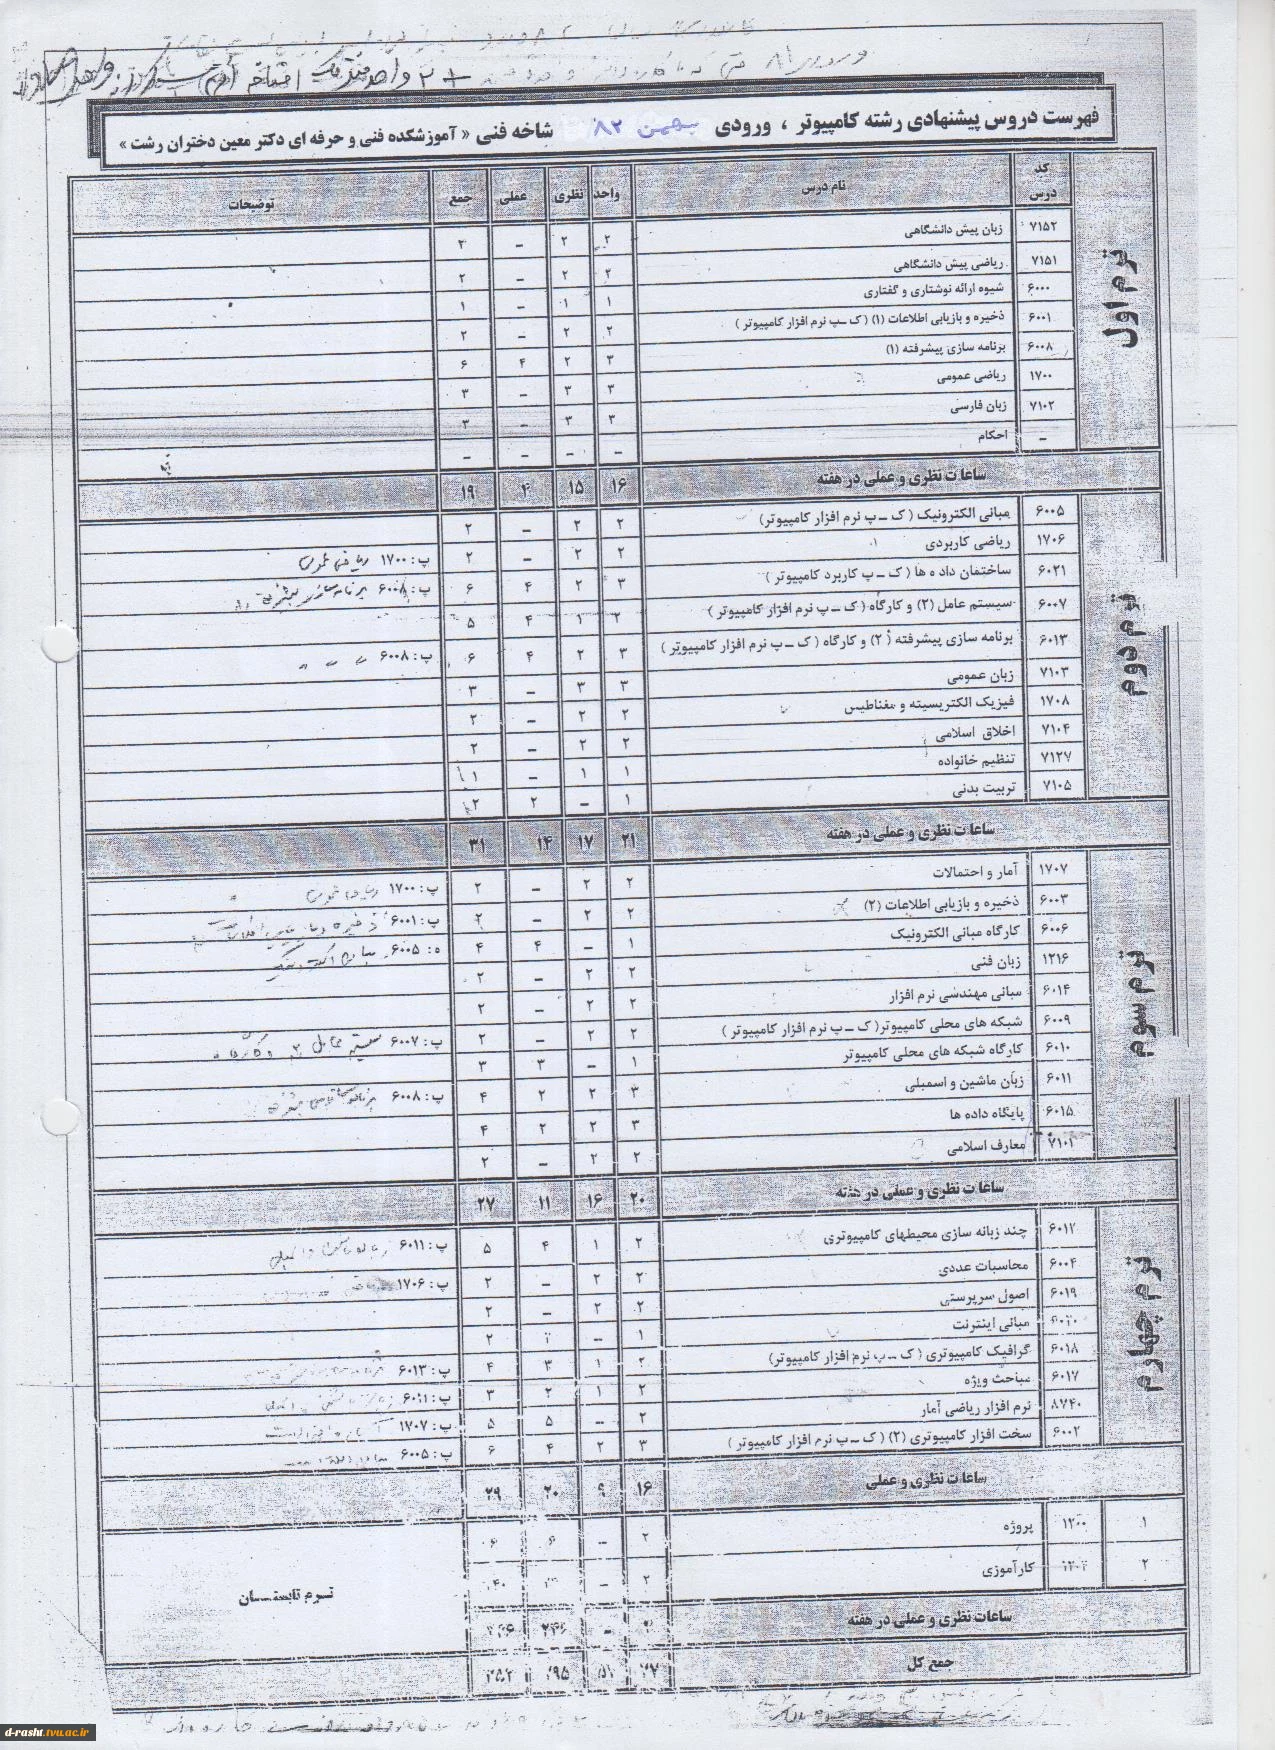 فهرست دروس پیشنهادی رشته کامپیوتر ، ورودی بهمن ۸۲ شاخه فنی « آموزشکده فنی و حرفه ای دکتر معین دختران رشت »
کد درس نام درس واحد نظری عملی جمع توضیحات
ترم اول
۷۱۵۲ زبان پیش دانشگاهی ۲ ۲ – ۲
۷۱۵۱ ریاضی پیش دانشگاهی ۲ ۲ – ۲
۶۰۰۰ شیوه ارائه نوشتاری و گفتاری ۱ ۱ – ۱
۶۰۰۱ ذخیره و بازیابی اطلاعات (۱) (ک-پ نرم افزار کامپیوتر) ۲ ۲ – ۲
۶۰۰۸ برنامه سازی پیشرفته (۱) ۳ ۲ ۴ ۶
۱۷۰۰ ریاضی عمومی ۳ ۳ – ۳
۷۱۰۲ زبان فارسی ۳ ۳ – ۳
– احکام – – – –
ساعات نظری و عملی در هفته ۱۶ ۱۵ ۴ ۱۹
ترم دوم
۶۰۰۵ مبانی الکترونیک (ک-پ نرم افزار کامپیوتر) ۲ ۲ – ۲
۱۷۰۶ ریاضی کاربردی ۲ ۲ – ۲ پ: ۱۷۰۰ ریاضی عمومی
۶۰۲۱ ساختمان داده ها (ک-پ کاربرد کامپیوتر) ۳ ۲ ۴ ۶ پ: ۶۰۰۸ برنامه سازی پیشرفته
۶۰۰۷ سیستم عامل (۲) و کارگاه (ک-پ نرم افزار کامپیوتر) ۲ ۱ ۴ ۵
۶۰۱۳ برنامه سازی پیشرفته (۲) و کارگاه (ک-پ نرم افزار کامپیوتر) ۳ ۲ ۴ ۶ پ: ۶۰۰۸
۷۱۰۳ زبان عمومی ۳ ۳ – ۳
۱۷۰۸ فیزیک الکتریسیته و مغناطیس ۲ ۲ – ۲
۷۱۰۴ اخلاق اسلامی ۲ ۲ – ۲
۷۱۲۷ تنظیم خانواده ۱ ۱ – ۱
۷۱۰۵ تربیت بدنی ۱ – ۲ ۲
ساعات نظری و عملی در هفته ۲۱ ۱۷ ۱۴ ۳۱
ترم سوم
۱۷۰۷ آمار و احتمالات ۲ ۲ – ۲ پ: ۱۷۰۰ ریاضی عمومی
۶۰۰۳ ذخیره و بازیابی اطلاعات (۲) ۲ ۲ – ۲ پ: ۶۰۰۱ ذخیره و بازیابی اطلاعات
۶۰۰۶ کارگاه مبانی الکترونیک ۱ – ۴ ۴ ه: ۶۰۰۵ مبانی الکترونیک
۱۲۱۶ زبان فنی ۲ ۲ – ۲
۶۰۱۴ مبانی مهندسی نرم افزار ۲ ۲ – ۲
۶۰۰۹ شبکه های محلی کامپیوتر(ک-پ نرم افزار کامپیوتر) ۲ ۲ – ۲ پ: ۶۰۰۷ سیستم عامل ۲ و کارگاه
۶۰۱۰ کارگاه شبکه های محلی کامپیوتر ۱ – ۳ ۳
۶۰۱۱ زبان ماشین و اسمبلی ۳ ۲ ۲ ۴ پ: ۶۰۰۸ برنامه سازی پیشرفته
۶۰۱۵ پایگاه داده ها ۳ ۲ ۲ ۴
۷۱۰۱ معارف اسلامی ۲ ۲ – ۲
ساعات نظری و عملی در هفته ۲۰ ۱۶ ۱۱ ۲۷
ترم چهارم
۶۰۱۲ چند زبانه سازی محیطهای کامپیوتری ۲ ۱ ۴ ۵ پ: ۶۰۱۱
۶۰۰۴ محاسبات عددی ۲ ۲ – ۲ پ: ۱۷۰۶
۶۰۱۹ اصول سرپرستی ۲ ۲ – ۲
مبانی اینترنت ۱ – ۲ ۲
۶۰۱۸ گرافیک کامپیوتری (ک-پ نرم افزار کامپیوتر) ۲ ۱ ۳ ۴ پ: ۶۰۱۳
۶۰۱۷ مباحث ویژه ۲ ۱ ۲ ۳ پ: ۶۰۱۱
۸۷۴۰ نرم افزار ریاضی آمار ۲ – ۵ ۵ پ: ۱۷۰۷
۶۰۰۲ سخت افزار کامپیوتری (۲) (ک-پ نرم افزار کامپیوتر) ۳ ۲ ۴ ۶ پ: ۶۰۰۵
ساعات نظری و عملی ۱۶ ۹ ۲۰ ۲۹
۱ ۱۲۰۰ پروژه ۲ – ۶ ۶
۲ کارآموزی ۲ –
ترم تابستان
ساعات نظری و عملی در هفته
جمع کل
d-rasht.tvu.ac.ir